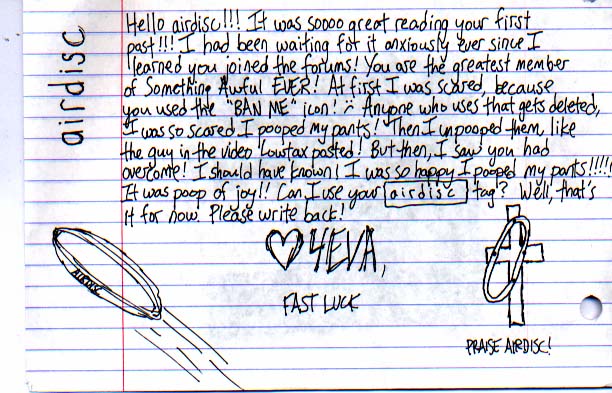 airdisc
Hello airdisc!!! It was soooo great reading your first
past!!! I had been waiting for it anxiously ever since I
learned you joined the forums! You are the greatest member
of Something Awful EVER! At first I was scared, because
you used the "BAN ME" icon! :( Anyone who uses that gets deleted,
I was so scared I pooped my pants! Then I unpooped them, like
the guy in the video Lowtax posted! But then, I saw you had
overcome! I should have known! I was so happy I pooped my pants!!!!!
It was poop of joy!! Can I use your airdisc tag? Well, that's
it for now. Please write back!
♡ 4EVA,
FAST LUCK
AIRDISC
PRAISE AIRDISC!